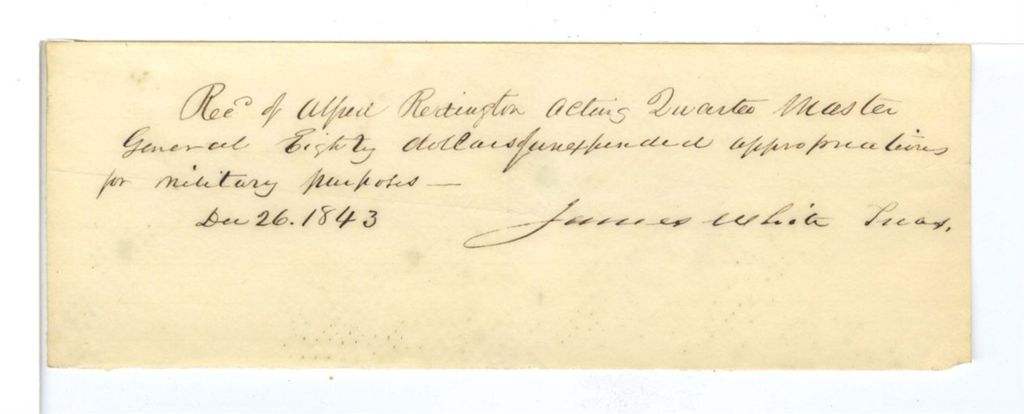 Recd of Alfred Redington Acting Quarter Master
General Eighty dollars of unexpended appropriations
for military purposes —
Dec 26. 1843 James White Treas.